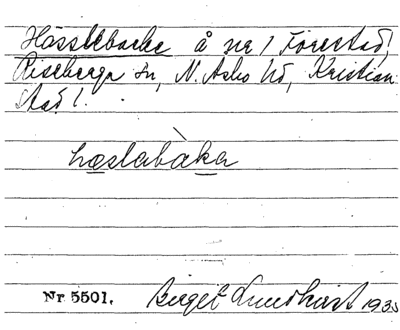 Hässlebacke å nr 1 Forestad,
Riseberga sn, N. Åsbo hd, Kristian
stad l.
hæslabàka
Nr 5501. Birget Lundkvist 1935